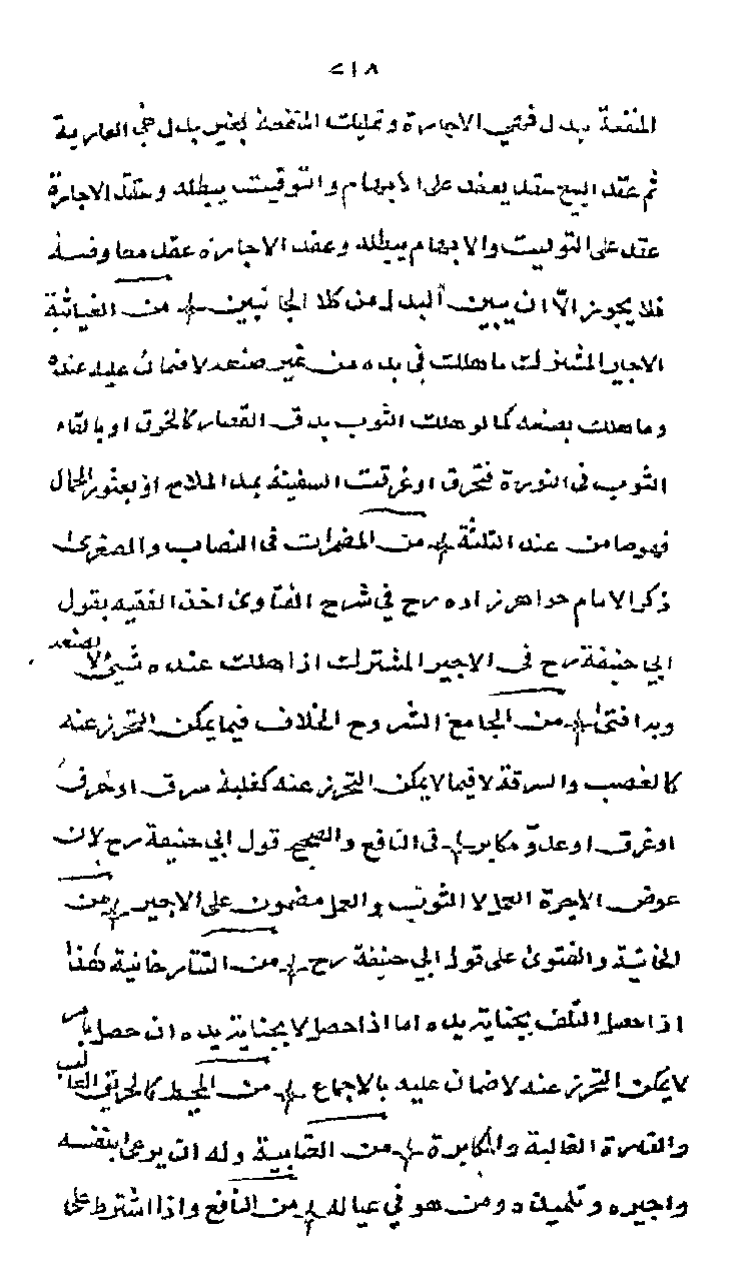 ٢١٨
المنفعة ببدل فهي الاجارة وتمليك المنفعة بغير بدل هي العارية
ثم عقد البيع عقد يعقد على الابهام والتوقيت يبطله وعقد الاجارة
عقد على التوقيت والابهام يبطله وعقد الاجارة عقد معاوضة
فلا يجوز الّا ان يبين البدل من كلا الجانبين من الغياثية
الاجير المشترك ما هلك في يده من غير صنعه لا ضمان عليه عنده
وما هلك بصنعه كما لو هلك الثوب بدق القصار كالخرق او بالقاء
الثوب في النورة فتحرق او غرقت السفينة بمد الملاح او بعثور الحمال
فهو ضامن عند الثلثة من المضمرات في النصاب والصغرى
ذكر الامام خواهر زاده رح في شرح الفتاوى اخذ الفقيه بقول
ابي حنيفة رح في الاجير المشترك اذا هلك عنده شيئ لا بصنعه
وبه افتى من الجامع الشروح الخلاف فيما يمكن التحرز عنه
كالغصب والسرقة لا فيما لا يمكن التحرز عنه كغلبة سرق او حرق
او غرق او عدوّ مكابر في النافع والصحيح قول ابي حنيفة رح لان
عوض الاجرة العمل لا الثوب والعمل مضمون على الاجير من
الخانية والفتوى على قول ابي حنيفة رح من التتارخانية هذا
اذا حصل التلف بجناية يده اما اذا حصل لا بجناية يده ان حصل بامر
لا يمكن التحرز عنه لا ضمان عليه بالاجماع من المحيط كالحريق الغالب
والغارة الغالبة والمكابرة من العتابية وله ان يرعى بنفسه
واجيره وتلميذه ومن هو في عياله من النافع واذا اشترط على